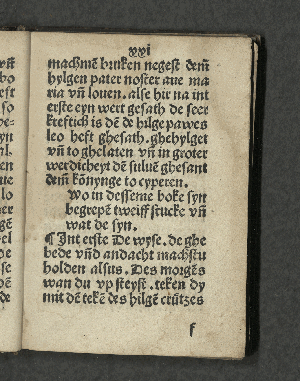 xvi
machmē bruken negest dem̄
hylgen pater noster aue ma
ria vn̄ louen. alse hir na int
erste eyn wert gesath de seer
krefftich is dē de hilge pawes
leo heft ghesath. ghehylget
vn̄ to ghelaten vn̄ in groter
werdicheyt dē suluē ghesant
dem̄ kōnynge to cyperen.
Wo in desseme boke syn
begrepē tweiff stucke vn̄
wat de syn.
¶ Int erste De wyse. de ghe
bede vn̄d andacht machstu
holden alsus. Des morgēs
wan du vp steyst. teken dy
mit dē tekē des hilgē crützes
f